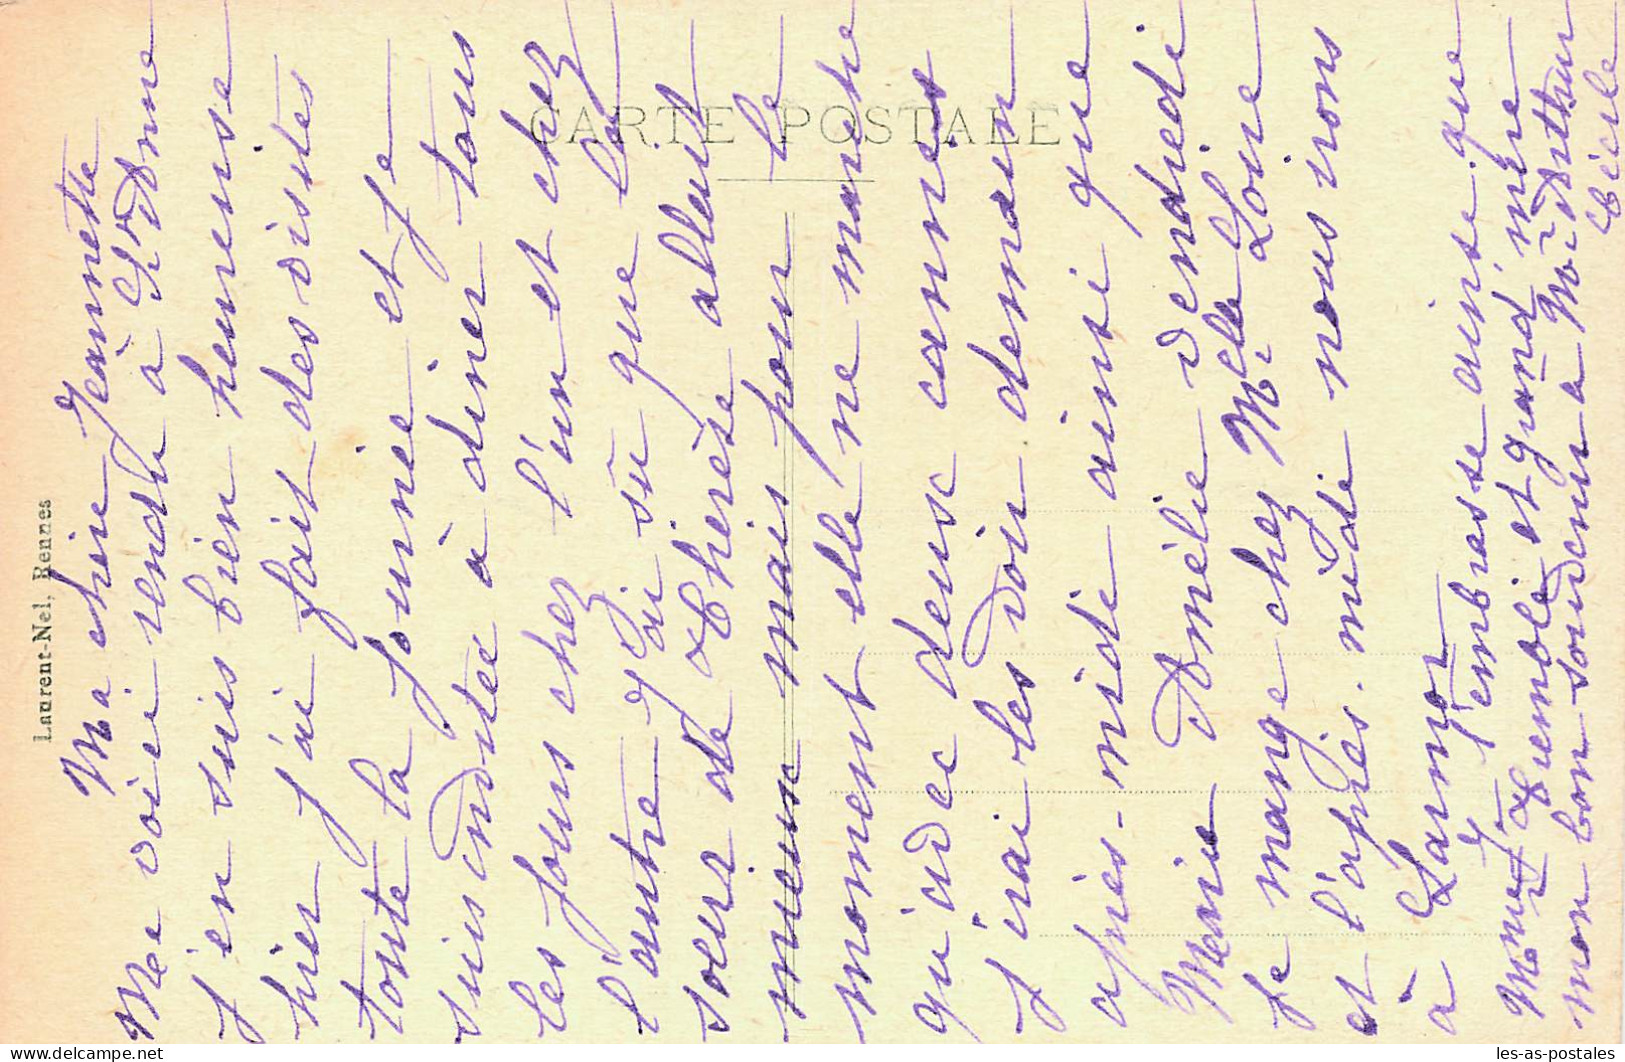 Laurent-Nel, Rennes
CARTE POSTALE
Ma chère Jeannette
Me voici rendu à
j'en suis bien heureuse
hier j'ai fait des visites
toute la journée et je
suis invitée à diner tous
les jours chez l'un et chez
l'autre J'ai su que la
soeur de Thérèse allait
mieux mais pour le
moment elle ne marche
qu'avec deux cannes
j'irai les voir demain
après-midi ainsi que
Marie Amélie vendredi
je mange chez Melle Loire
et l'après-midi nous irons
à Larmor
J'embrasse ainsi que
et grand mère
mon bon souvenir à Mr Arthur
Cécile
les-as-postales
delcampe.net